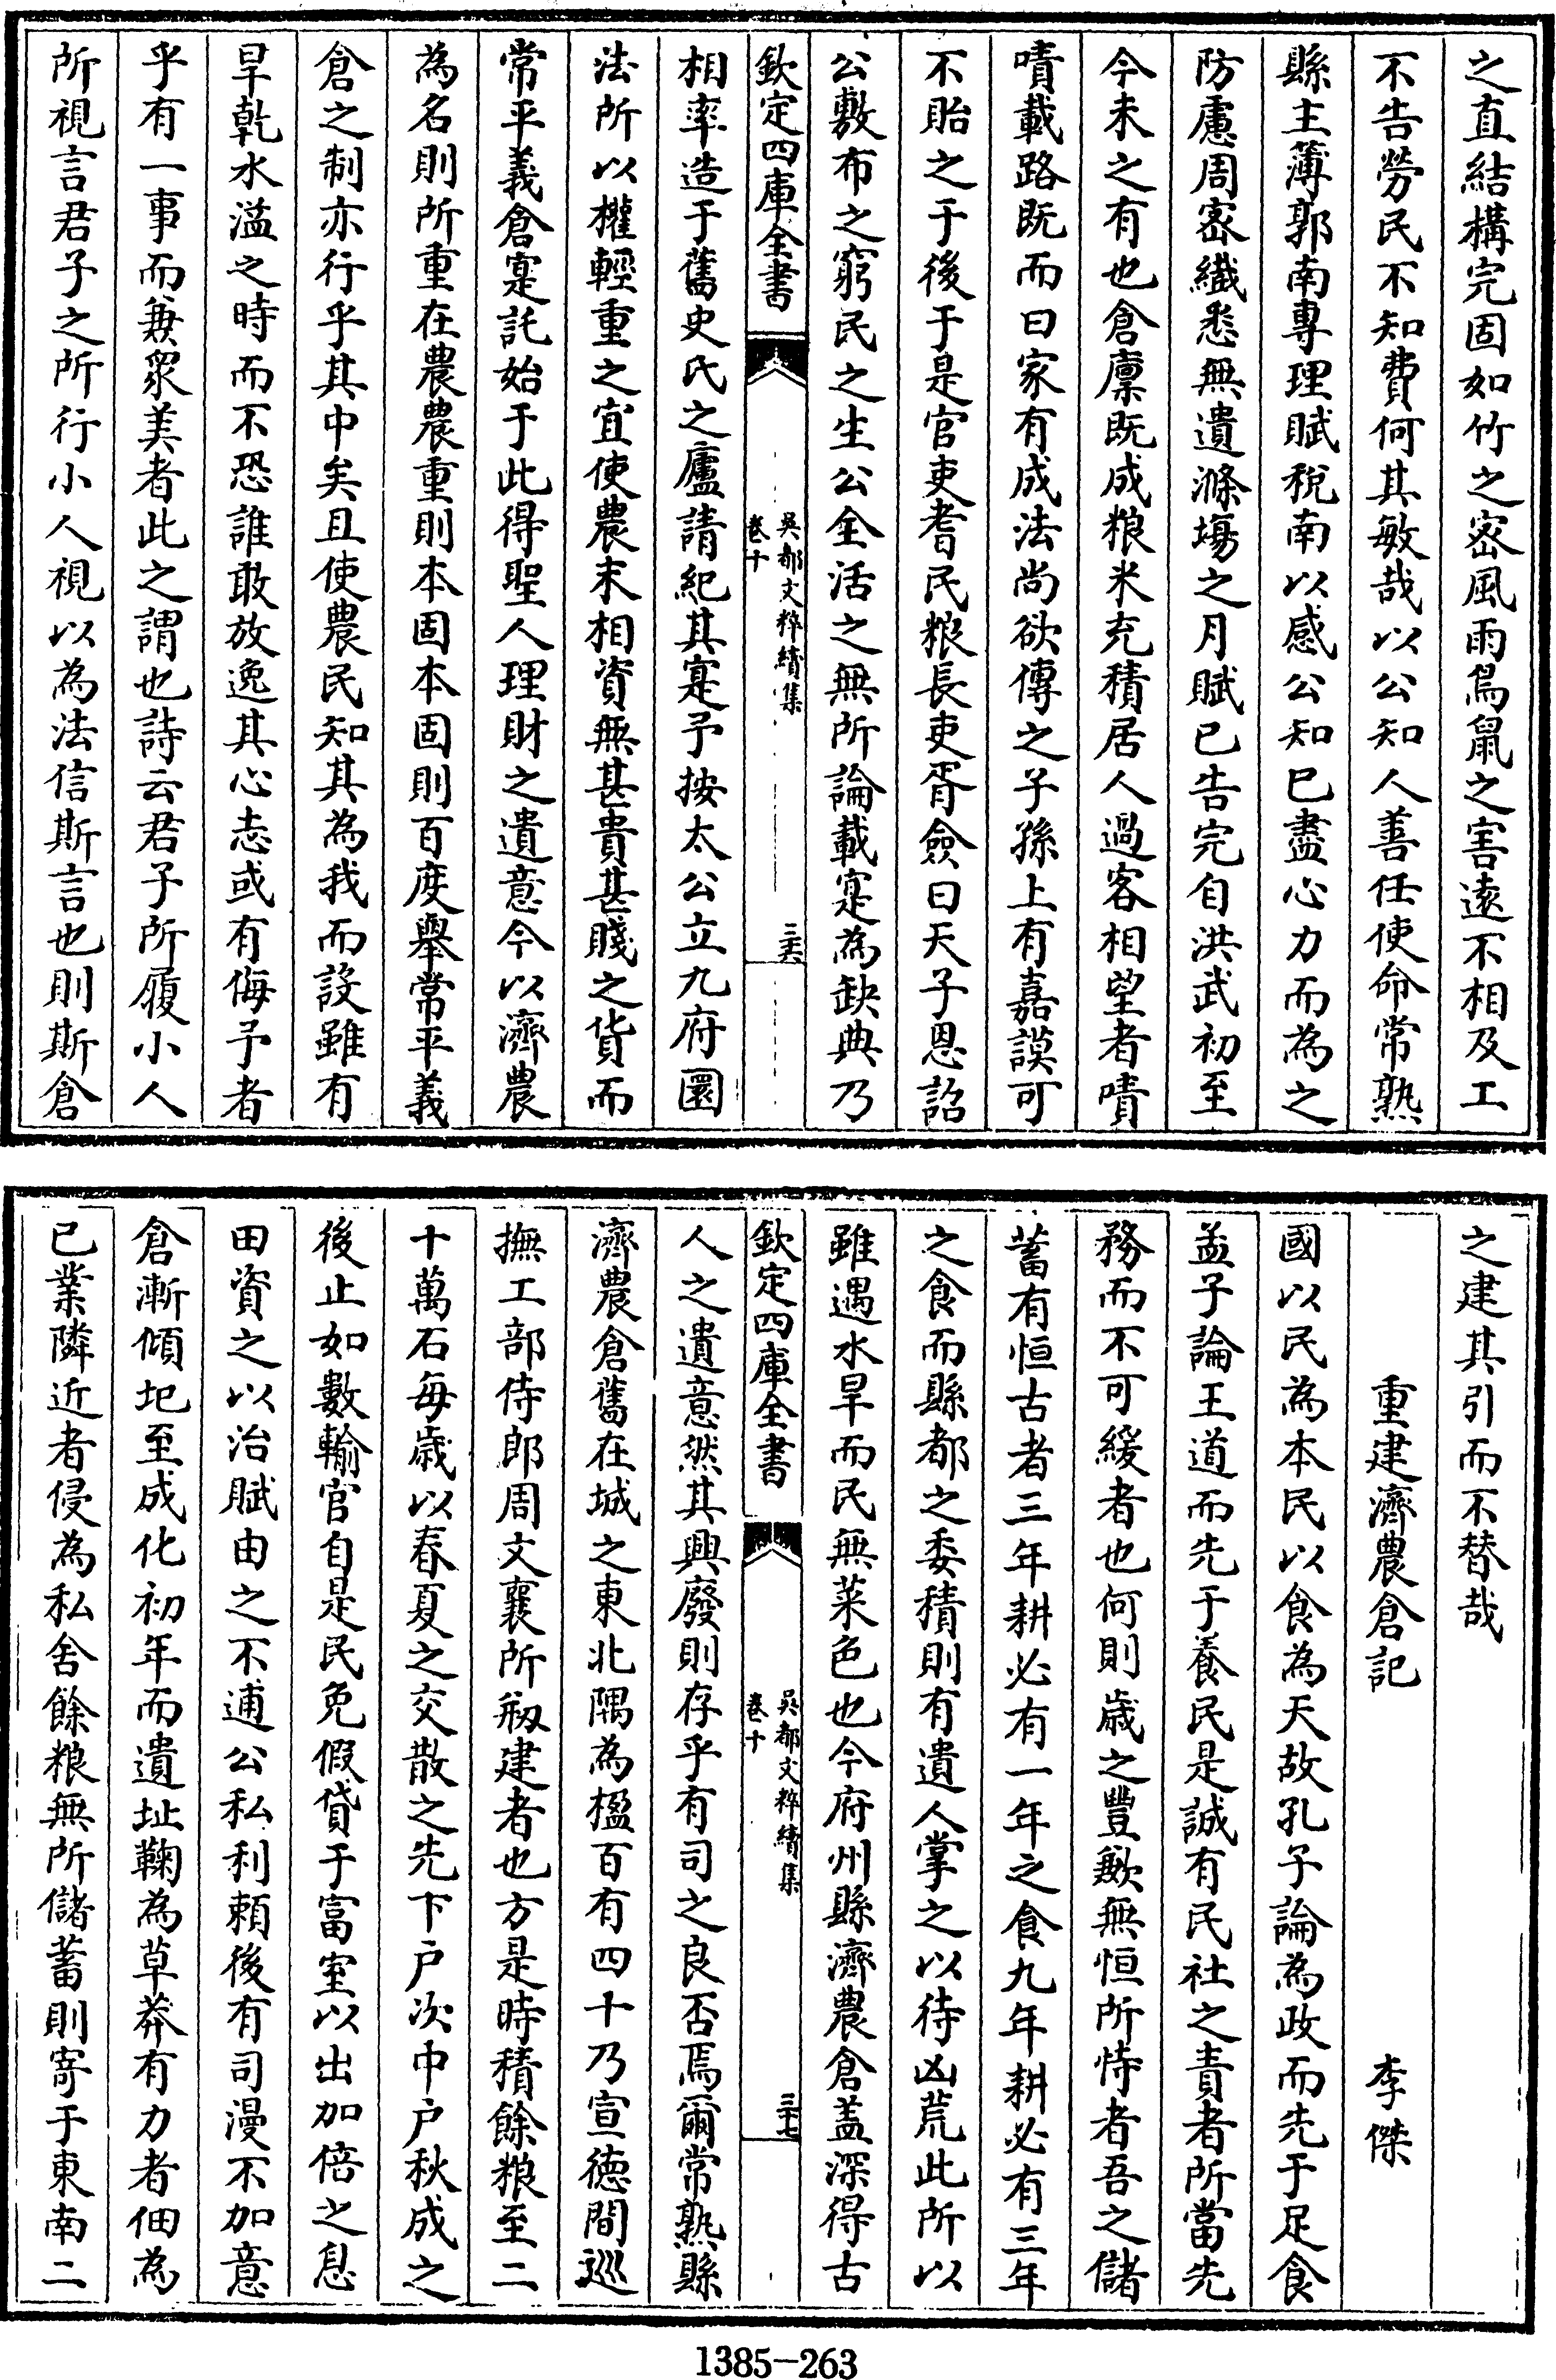 之直結構完固如竹之宻風雨鳥鼠之害逺不相及工
不告勞民不知費何其敏哉以公知人善任使命常熟
縣主簿郭南專理賦稅南以感公知已盡心力而為之
防慮周宻纎悉無遺滌塲之月賦已告完自洪武初至
今未之有也倉廪既成粮米充積居人過客相望者嘖
嘖載路既而曰家有成法尚欲傳之子孫上有嘉謨可
不貽之于後于是官吏耆民粮長吏胥僉曰天子恩詔
公敷布之窮民之生公全活之無所論載寔為缺典乃
欽定四庫全書
吳都文粹續集
卷十
三六
相率造于舊史氏之廬請紀其寔予按太公立九府圜
法所以權輕重之宜使農末相資無甚貴甚賤之貨而
常平義倉寔託始于此得聖人理財之遺意今以濟農
為名則所重在農農重則本固本固則百度舉常平義
倉之制亦行乎其中矣且使農民知其為我而設雖有
旱乾水溢之時而不恐誰敢放逸其心志或有侮予者
乎有一事而兼衆美者此之謂也詩云君子所履小人
所視言君子之所行小人視以為法信斯言也則斯倉
之建其引而不替哉
重建濟農倉記 李傑
國以民為本民以食為天故孔子論為政而先于足食
孟子論王道而先于養民是誠有民社之責者所當先
務而不可緩者也何則歲之豐歉無恒所恃者吾之儲
蓄有恒古者三年耕必有一年之食九年耕必有三年
之食而縣都之委積則有遺人掌之以待凶荒此所以
雖遇水旱而民無菜色也今府州縣濟農倉盖深得古
欽定四庫全書
吳都文粹續集
卷十
三七
人之遺意然其興廢則存乎有司之良否焉爾常熟縣
濟農倉舊在城之東北隅為楹百有四十乃宣德間巡
撫工部侍郎周文襄所剏建者也方是時積餘粮至二
十萬石每歲以春夏之交散之先下户次中户秋成之
後止如數輸官自是民免假貸于富室以出加倍之息
田資之以治賦由之不逋公私利頼後有司漫不加意
倉漸傾圮至成化初年而遺址鞠為草莽有力者佃為
已業隣近者侵為私舍餘粮無所儲蓄則寄于東南二
1385-263